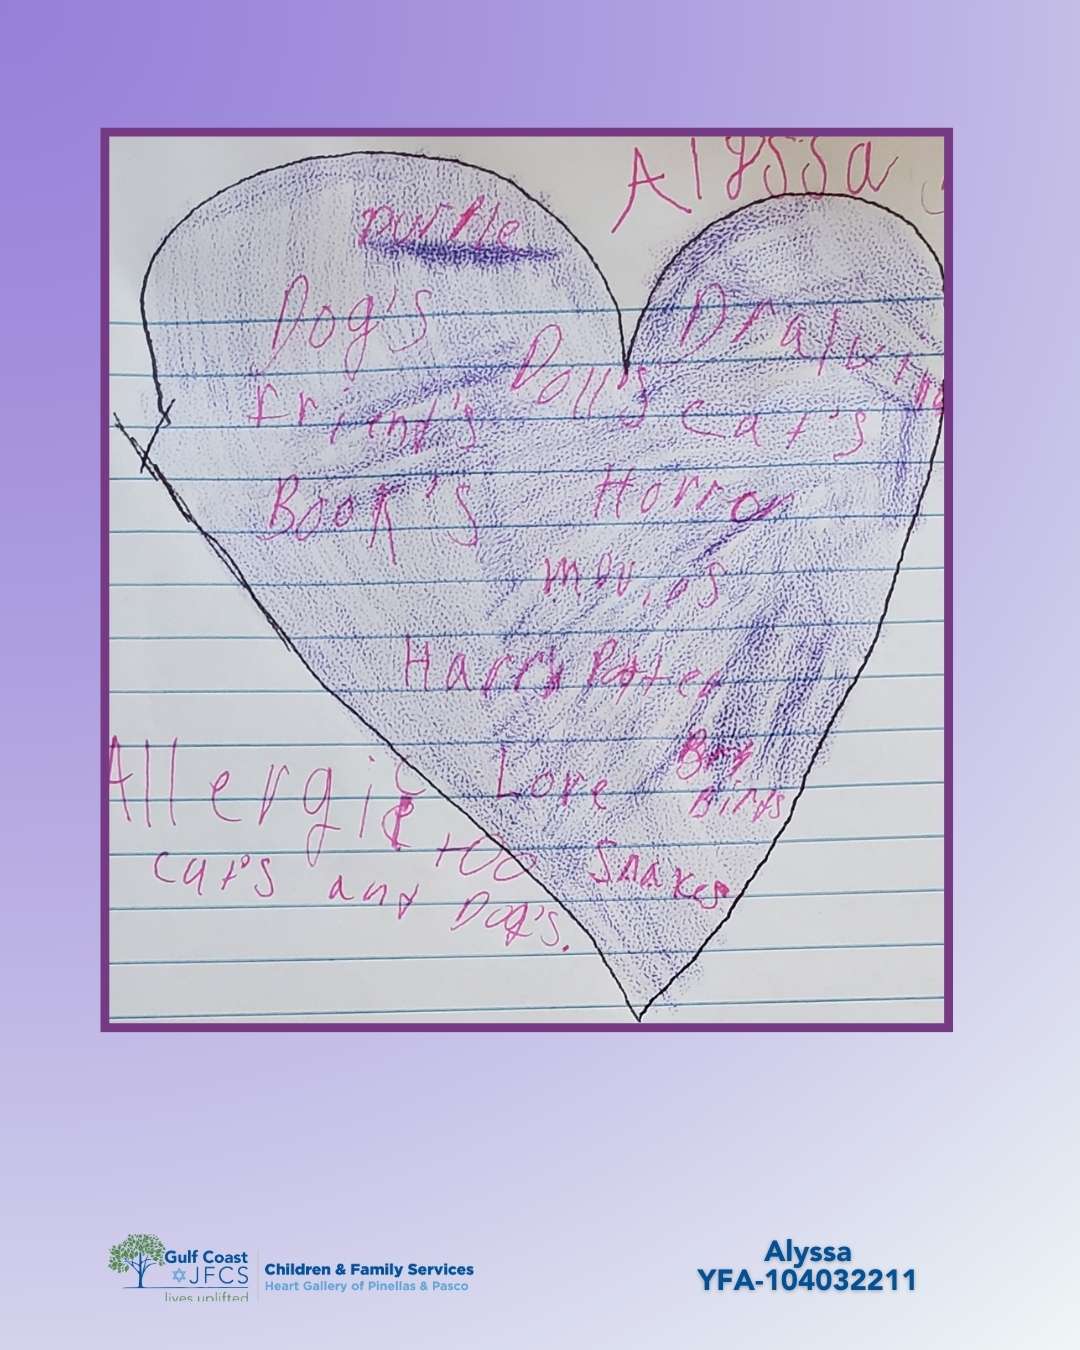 Alyssa
purple
Dog's
Drawing
Doll's
Frient's
Cat's
Book's
Horror
movies
Harry Potter
Love
Birds
Snakes
Allergic
too
cat's and Dog's.
Gulf Coast
JFCS
lives uplifted
Children & Family Services
Heart Gallery of Pinellas & Pasco
Alyssa
YFA-104032211